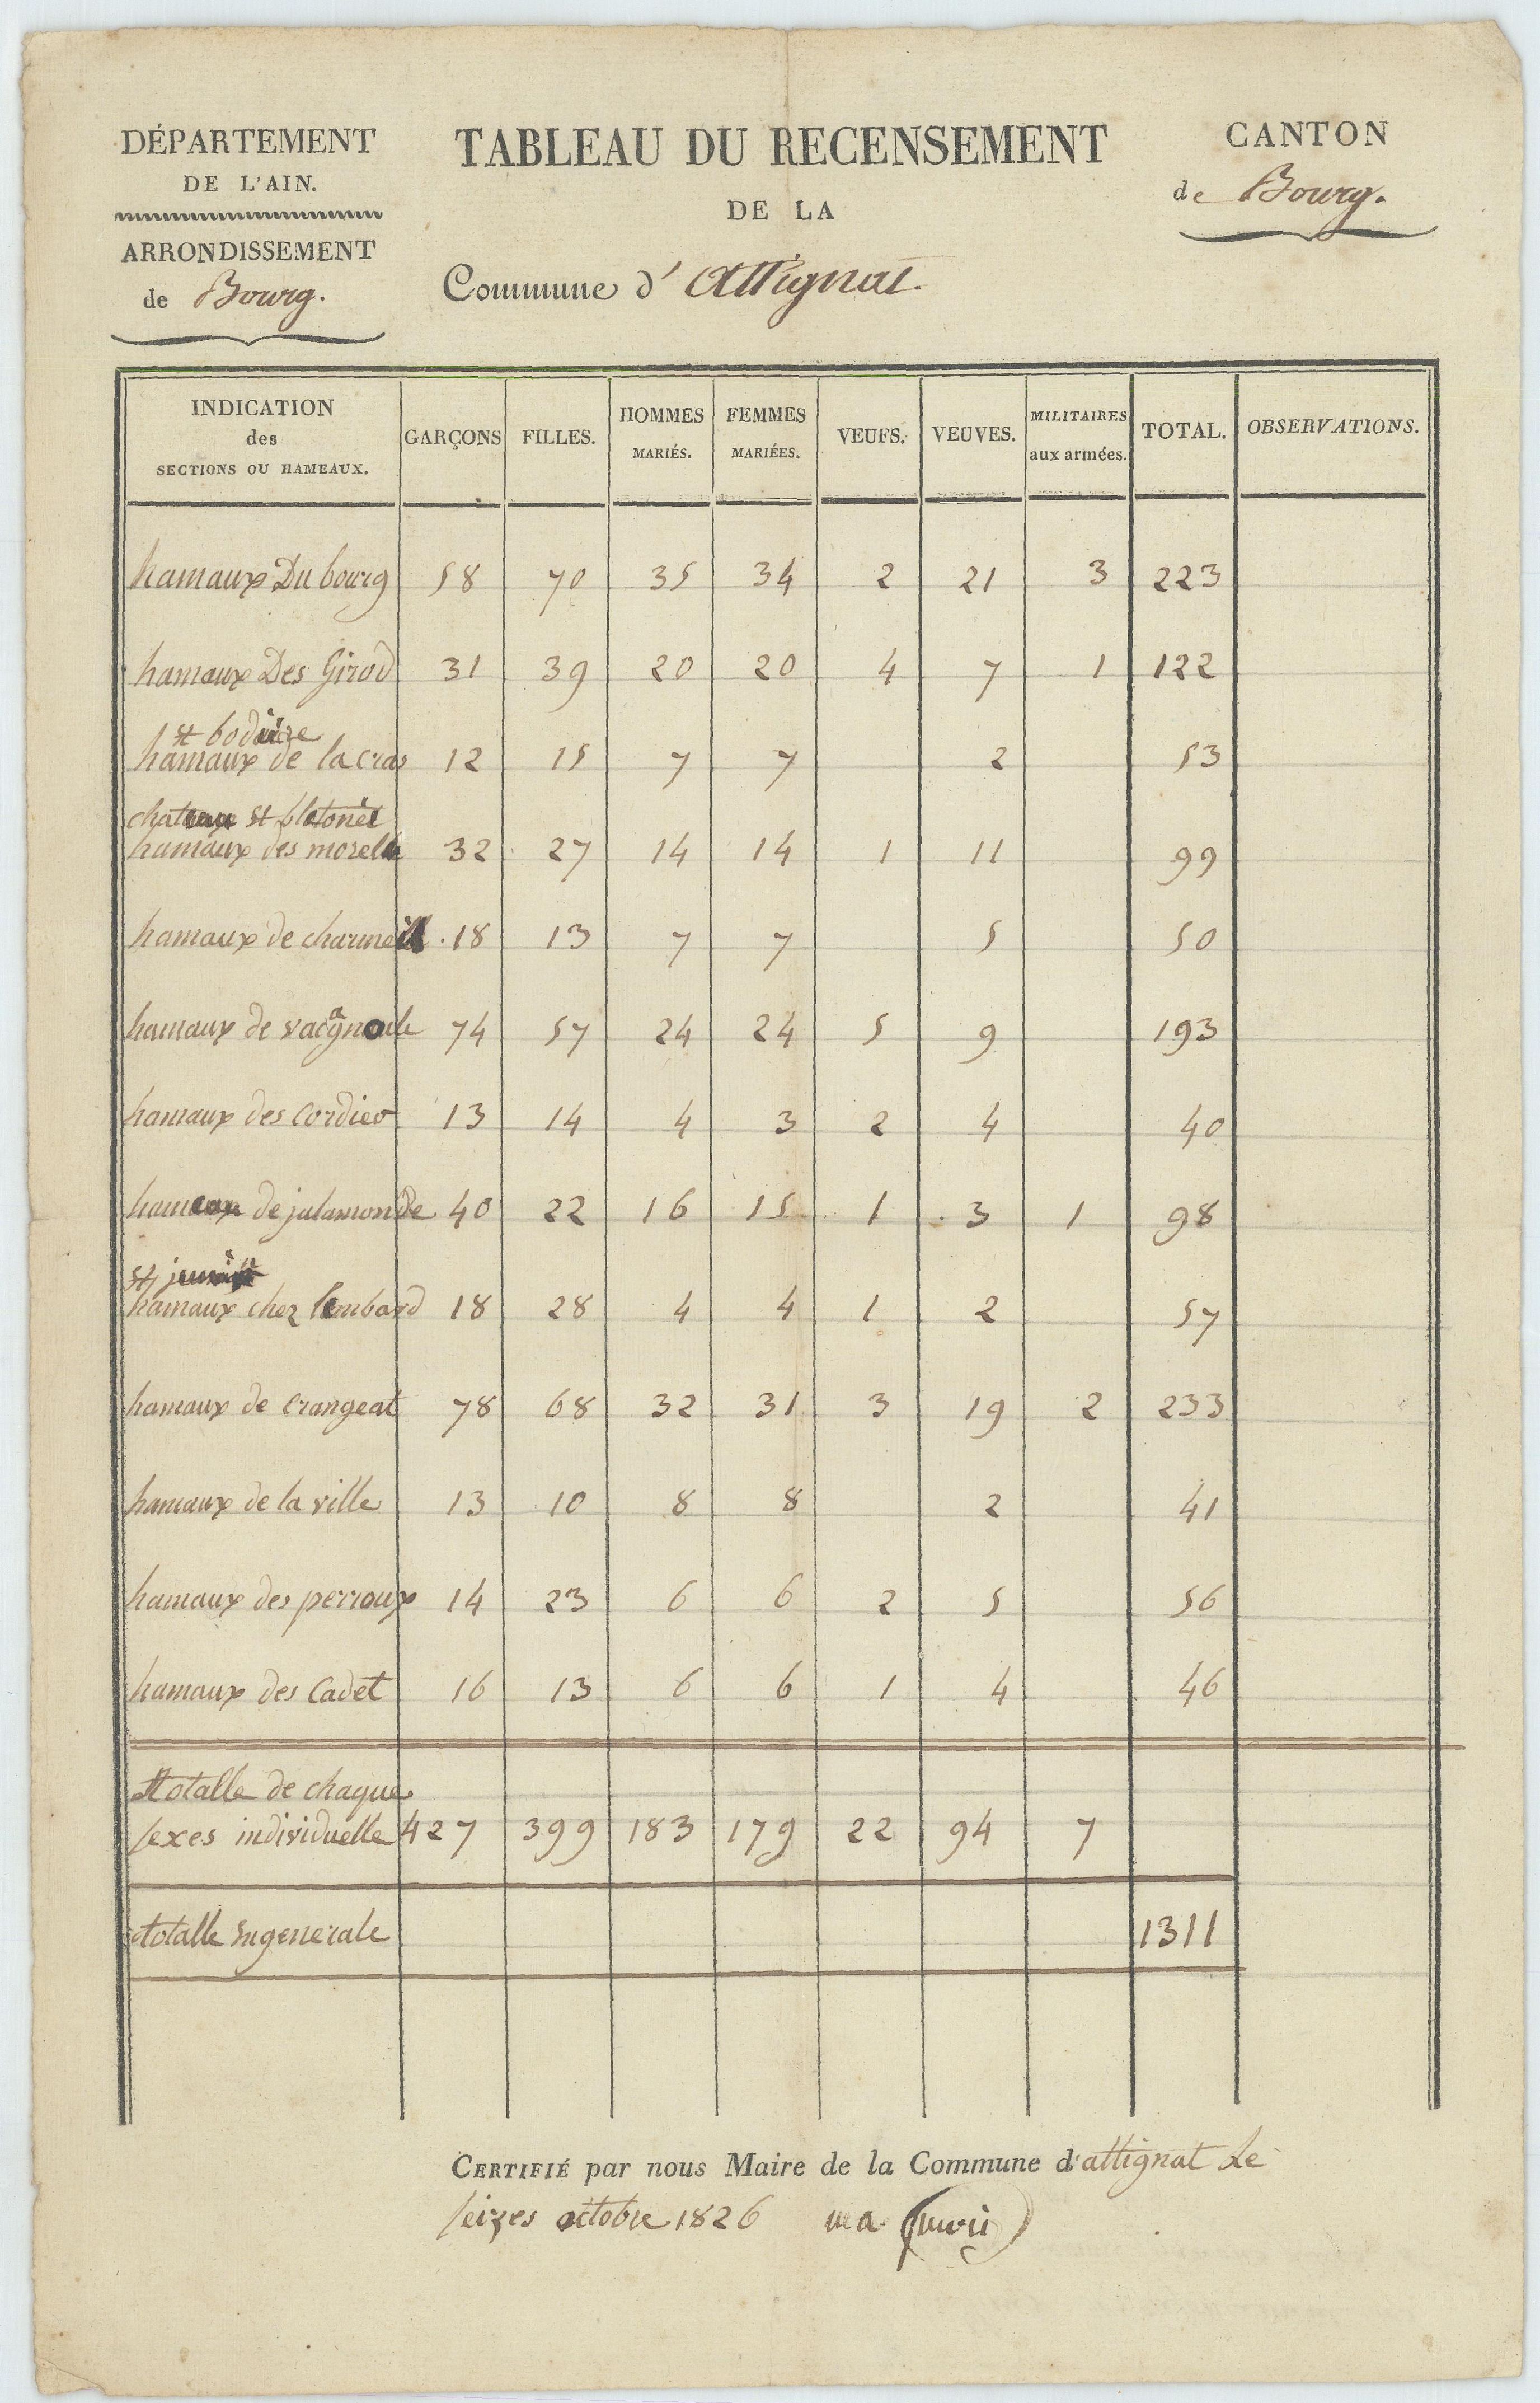 DÉPARTEMENT
DE L'AIN.
ARRONDISSEMENT
de Bourg.
TABLEAU DU RECENSEMENT
DE LA
Commune d' Attignat.
CANTON
de Bourg.
INDICATION des SECTIONS OU HAMEAUX. GARÇONS FILLES. HOMMES MARIÉS. FEMMES MARIÉES. VEUFS. VEUVES. MILITAIRES aux armées. TOTAL. OBSERVATIONS.
hamaux Du bourg 58 70 35 34 2 21 3 223
hamaux Des Girod 31 39 20 20 4 7 1 122
st
hamaux de la cras 12 15 7 7 2 53
chateau st
hamaux des morelle 32 27 14 14 1 11 99
hamaux de charmeill 18 13 7 7 5 50
hamaux de 74 57 24 24 5 9 193
hamaux des Cordier 13 14 4 3 2 4 40
hameau de jalamonde 40 22 16 15 1 3 1 98
st
hamaux chez lombard 18 28 4 4 1 2 57
hamaux de Crangeat 78 68 32 31 3 19 2 233
hamaux de la ville 13 10 8 8 2 41
hamaux des perroux 14 23 6 6 2 5 56
hamaux des Cadet 16 13 6 6 1 4 46
totalle de chaque
sexes individuelle 427 399 183 179 22 94 7
totalle en generale 1311
CERTIFIÉ par nous Maire de la Commune d'attignat Le
seizes octobre 1826